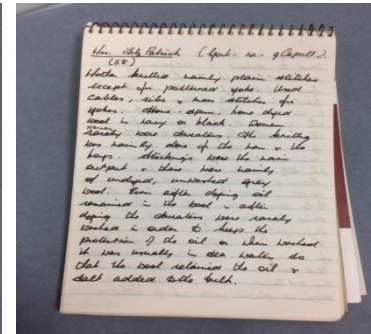 Mrs. Fitz Patrick (Gort - na - gCapall).
(58)
Mother knitted mainly plain stitches
except for patterned yoke. Used
cables, ribs & moss stitches for
yokes. Home-spun, home dyed
wool in navy or black. Women
rarely wore sweaters. The knitting
was mainly done for the men & the
boys. Stockings were the main
output & these were mainly
of undyed, unwashed grey
wool. Even after dyeing oil
remained in the wool & after
dyeing the sweaters were rarely
washed in order to keep the
protection of the oil or when washed
it was usually in sea water so
that the wool retained the oil &
salt added to the bulk.